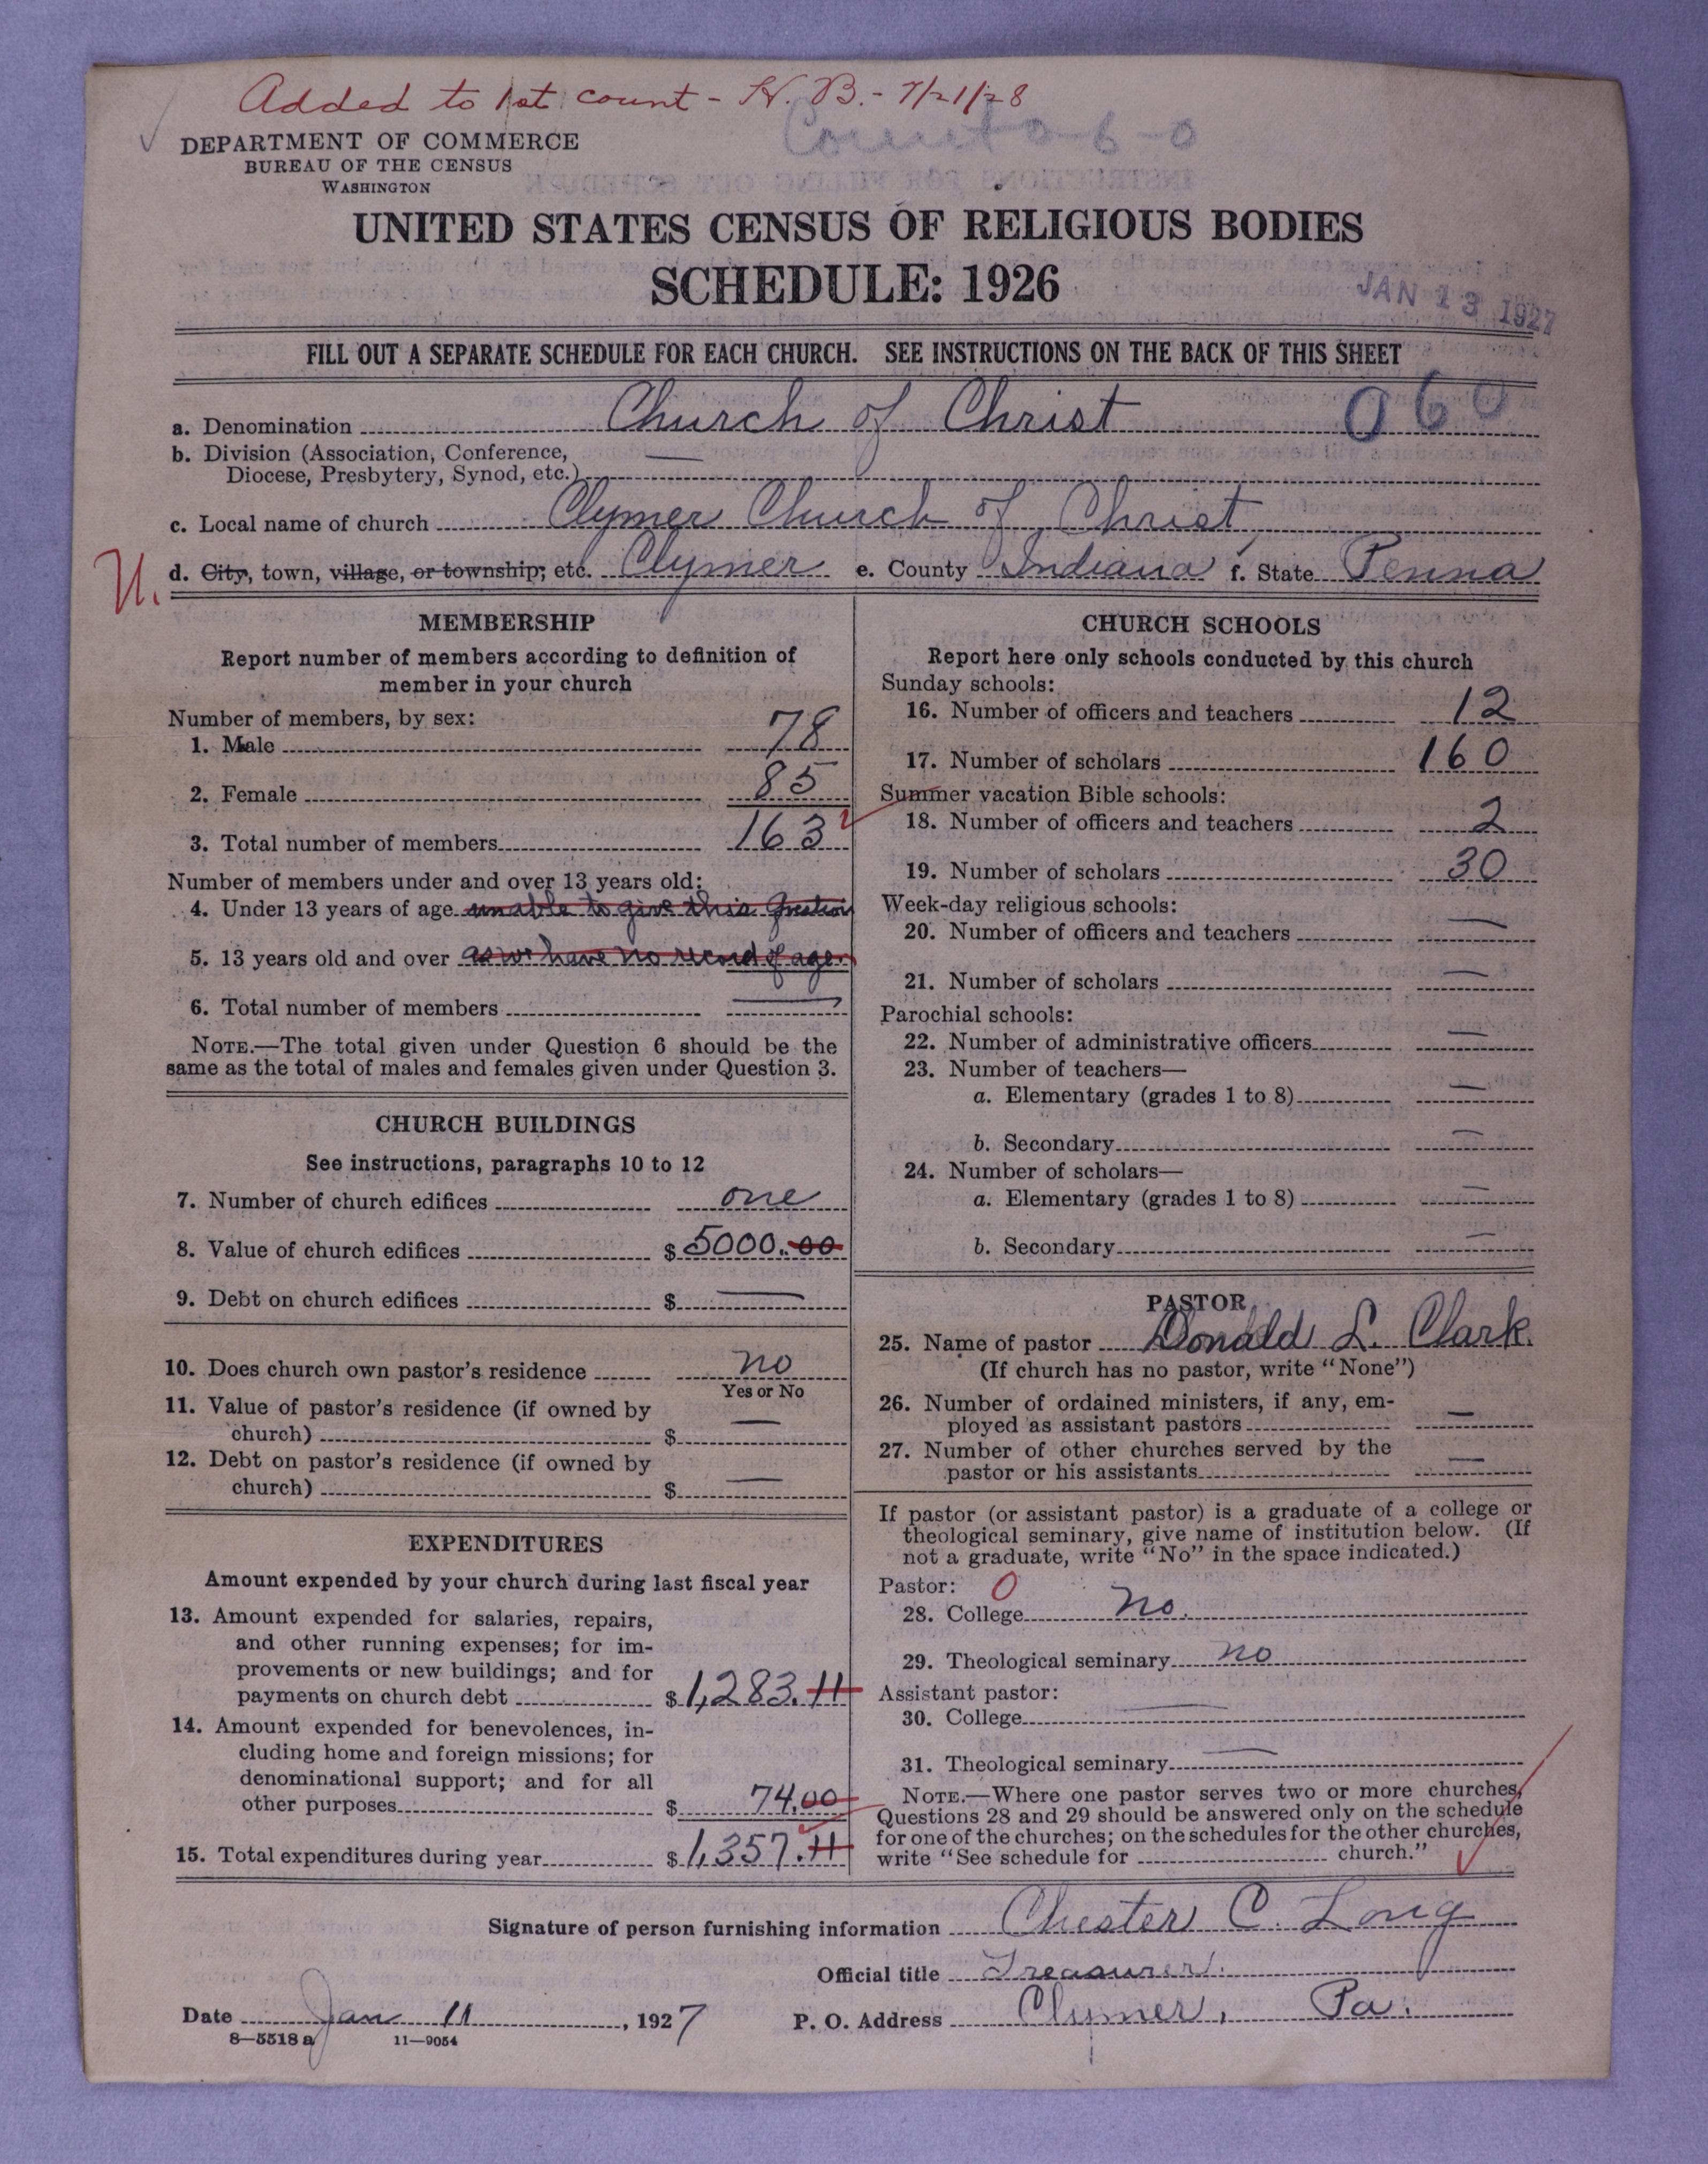 Added to 1st count - H. B. - 7/21/28
Count 0-6-0
DEPARTMENT OF COMMERCE
BUREAU OF THE CENSUS
WASHINGTON
UNITED STATES CENSUS OF RELIGIOUS BODIES
SCHEDULE: 1926
JAN 13 1927
FILL OUT A SEPARATE SCHEDULE FOR EACH CHURCH. SEE INSTRUCTIONS ON THE BACK OF THIS SHEET
a. Denomination Church of Christ 060
b. Division (Association, Conference, —
Diocese, Presbytery, Synod, etc.)
c. Local name of church Clymer Church of Christ
U. d. City, town, village, or township, etc. Clymer e. County Indiana f. State Penna
MEMBERSHIP
Report number of members according to definition of
member in your church
Number of members, by sex:
1. Male 78
2. Female 85
3. Total number of members 163
Number of members under and over 13 years old:
4. Under 13 years of age unable to give this question
5. 13 years old and over as we have no record of age.
6. Total number of members —
NOTE.—The total given under Question 6 should be the
same as the total of males and females given under Question 3.
CHURCH BUILDINGS
See instructions, paragraphs 10 to 12
7. Number of church edifices one
8. Value of church edifices $ 5000.00
9. Debt on church edifices $ —
10. Does church own pastor's residence no
Yes or No
11. Value of pastor's residence (if owned by
church) $ —
12. Debt on pastor's residence (if owned by
church) $ —
EXPENDITURES
Amount expended by your church during last fiscal year
13. Amount expended for salaries, repairs,
and other running expenses; for im-
provements or new buildings; and for
payments on church debt $ 1,283.11
14. Amount expended for benevolences, in-
cluding home and foreign missions; for
denominational support; and for all
other purposes $ 74.00
15. Total expenditures during year $ 1,357.11
CHURCH SCHOOLS
Report here only schools conducted by this church
Sunday schools:
16. Number of officers and teachers 12
17. Number of scholars 160
Summer vacation Bible schools:
18. Number of officers and teachers 2
19. Number of scholars 30
Week-day religious schools:
20. Number of officers and teachers —
21. Number of scholars —
Parochial schools:
22. Number of administrative officers —
23. Number of teachers—
a. Elementary (grades 1 to 8) —
b. Secondary —
24. Number of scholars—
a. Elementary (grades 1 to 8) —
b. Secondary —
PASTOR
25. Name of pastor Donald L. Clark.
(If church has no pastor, write "None")
26. Number of ordained ministers, if any, em-
ployed as assistant pastors —
27. Number of other churches served by the
pastor or his assistants —
If pastor (or assistant pastor) is a graduate of a college or
theological seminary, give name of institution below. (If
not a graduate, write "No" in the space indicated.)
Pastor: 0
28. College no.
29. Theological seminary no
Assistant pastor:
30. College —
31. Theological seminary —
NOTE.—Where one pastor serves two or more churches,
Questions 28 and 29 should be answered only on the schedule
for one of the churches; on the schedules for the other churches,
write "See schedule for church."
Signature of person furnishing information Chester C. Long
Official title Treasurer.
Date Jan 11, 1927 P. O. Address Clymer, Pa.
8—5518 a 11—9054